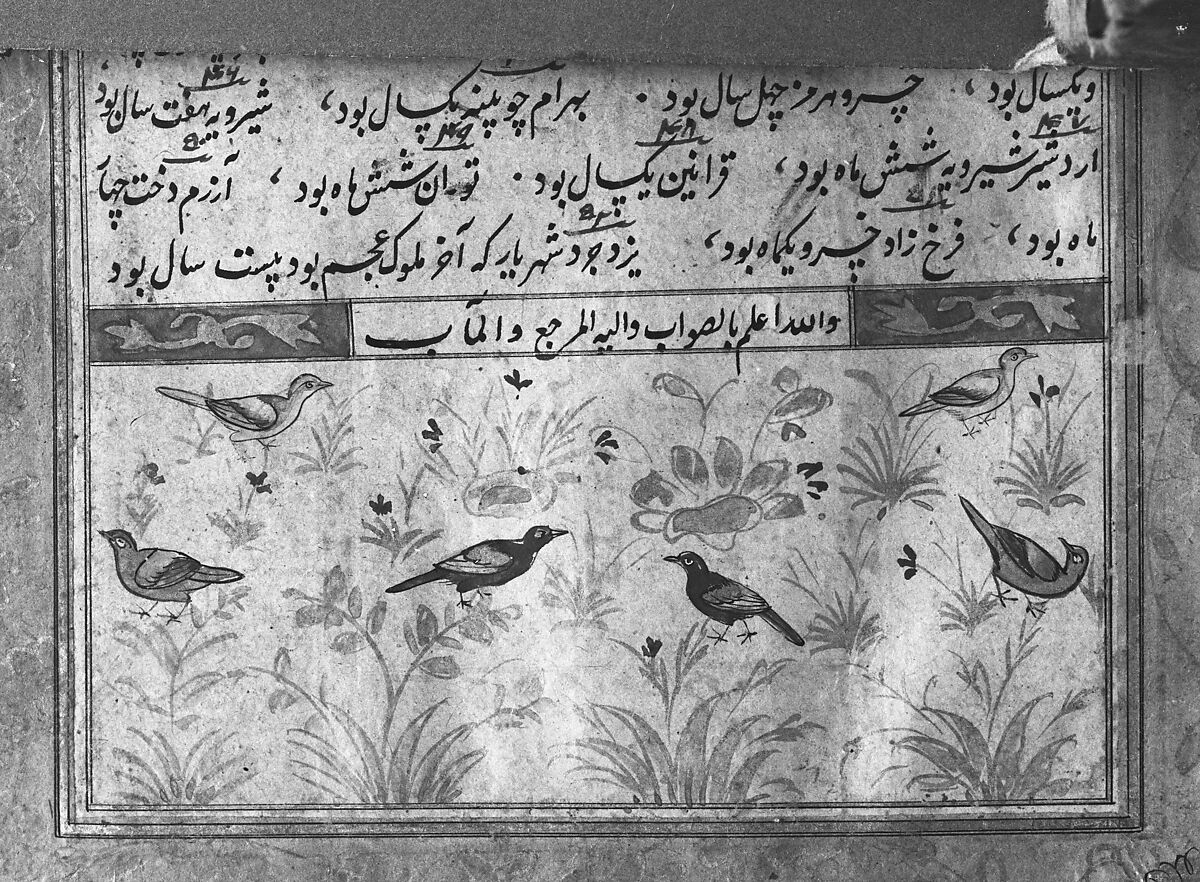 ویکسال بود ، خسرو هرمز چهل سال بود . بهرام چوبینه یکسال بود ، شیرویه هفت سال بود
اردشیر شیرویه شش ماه بود ، قرانین یکسال بود . توران شش ماه بود ، آزرم دخت چهار
ماه بود ، فرخ زاد خسرو یکماه بود ، یزدجرد شهریار که آخر ملوک عجم بود بیست سال بود
والله اعلم بالصواب والیه المرجع والمآب